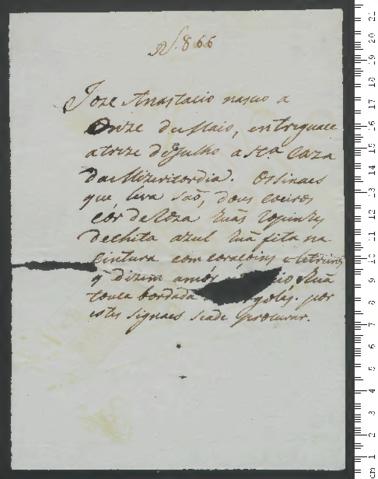 Nº. 866
Joze Anastacio nasceo a
Onze de Maio, entreguace
a treze de Julho a Sta. Caza
da Mizericordia. Os sinaes
que leva saõ, dous coeiros
côr de Roza
de chita azul huã fita na
cintura com coraçoins e letreiros
q dizem amór huã
touca bordada por
estes signaes se ade procurar.